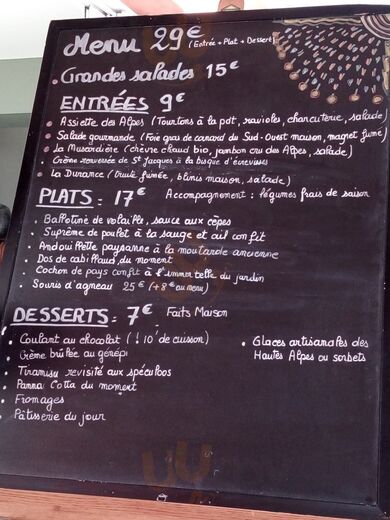 Menu 29€ (Entrée + Plat + Dessert)
Grandes salades 15€
ENTRÉES 9€
Assiette des Alpes (Tourtons à la pdt, ravioles, charcuterie, salade)
Salade gourmande (Foie gras de canard du Sud-Ouest maison, magret fumé)
La Musardière (chèvre chaud bio, jambon cru des Alpes, salade)
Crème renversée de St Jacques à la bisque d'écrevisses
La Durance (truite fumée, blinis maison, salade)
PLATS : 17€ Accompagnement : légumes frais de saison
Ballotine de volaille, sauce aux cèpes
Suprême de poulet à la sauge et ail confit
Andouillette paysanne à la moutarde ancienne
Dos de cabillaud du moment
Cochon de pays confit à l'immortelle du jardin
Souris d'agneau 25€ (+8€ au menu)
DESSERTS : 7€ Faits Maison
Coulant au chocolat (! 10' de cuisson)
Crème brûlée au génépi
Tiramisu revisité aux spéculoos
Panna Cotta du moment
Fromages
Pâtisserie du jour
Glaces artisanales des
Hautes Alpes ou sorbets